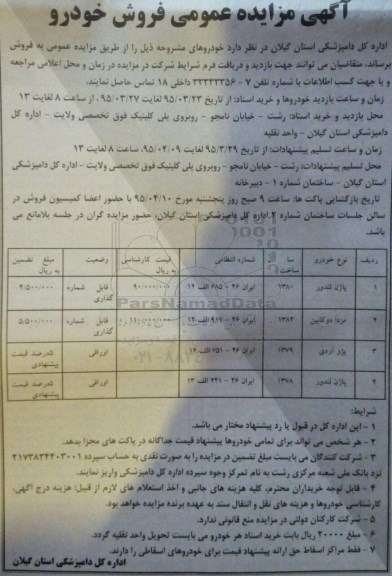 آگهی مزایده عمومی فروش خودرو
اداره کل دامپزشکی استان گیلان در نظر دارد خودروهای مشروحه ذیل را از طریق مزایده عمومی به فروش
برساند، متقاضیان می توانند جهت بازدید و دریافت فرم شرایط شرکت در مزایده در زمان و محل اعلامی مراجعه
و یا جهت کسب اطلاعات با شماره تلفن ۷ - ۳۳۳۳۳۳۵۶ داخلی ۱۸ تماس حاصل نمایند.
زمان و ساعت بازدید خودروها و خرید اسناد: از تاریخ ۹۵/۰۳/۲۳ لغایت ۹۵/۰۳/۲۷، از ساعت ۸ لغایت ۱۳
محل بازدید و خرید اسناد: رشت - خیابان نامجو - روبروی پلی کلینیک فوق تخصصی ولایت - اداره کل
دامپزشکی استان گیلان - واحد نقلیه
زمان و ساعت تسلیم پیشنهادات: از تاریخ ۹۵/۳/۲۹ لغایت ۹۵/۰۴/۰۹ ساعت ۸ لغایت ۱۳
محل تسلیم پیشنهادات: رشت - خیابان نامجو - روبروی پلی کلینیک فوق تخصصی ولایت - اداره کل دامپزشکی
استان گیلان - ساختمان شماره ۱ - دبیرخانه
تاریخ بازگشایی پاکت ها: ساعت ۹ صبح روز پنجشنبه مورخ ۹۵/۰۴/۱۰ با حضور اعضا کمیسیون فروش در
سالن جلسات ساختمان شماره ۲ اداره کل دامپزشکی استان گیلان، حضور مزایده گران در جلسه بلامانع می
باشد.
ردیف نوع خودرو سال ساخت شماره انتظامی قیمت کارشناسی به ریال وضعیت مبلغ تضمین به ریال
۱ پاژن تندور ۱۳۸۰ ایران ۴۶ - ۶۸۵ الف ۱۲ ۹۰/۰۰۰/۰۰۰ قابل شماره گذاری ۴/۵۰۰/۰۰۰
۲ مزدا دوکابین ۱۳۸۲ ایران ۴۶ - ۹۱۷ الف ۱۲ قابل شماره گذاری ۵/۵۰۰/۰۰۰
۳ پژو آردی ۱۳۷۹ ایران ۴۶ - ۷۵۱ الف ۱۲ اوراقی ۵درصد قیمت پیشنهادی
۴ پاژن تندور ۱۳۷۸ ایران ۴۶ - ۲۴۱ الف ۱۳ اوراقی ۵درصد قیمت پیشنهادی
ParsNamadData
شرایط:
۱ - این اداره کل در قبول یا رد پیشنهاد مختار می باشد.
۲ - هر شخص می تواند برای تمامی خودروها پیشنهاد قیمت جداگانه در پاکت های مجزا بدهد.
۳ - شرکت کنندگان می بایست مبلغ تضمین در مزایده را به صورت نقدی به حساب سپرده ۲۱۷۳۸۲۴۴۰۳۰۰۱
نزد بانک ملی شعبه مرکزی رشت به نام تمرکز وجوه سپرده اداره کل دامپزشکی واریز نمایند.
۴ - قابل توجه خریداران محترم، کلیه هزینه های جانبی و اخذ استعلام های لازم از قبیل: هزینه درج آگهی،
کارشناسی خودروها و هزینه های نقل و انتقال سند به عهده برنده مزایده خواهد بود.
۵ - شرکت کارکنان دولتی در مزایده منع قانونی ندارد.
۶ - مبلغ ۲۰۰۰۰۰ ریال بابت خرید اسناد هر خودرو می بایست تحویل واحد نقلیه گردد.
۷ - فقط مراکز اسقاط حق ارائه پیشنهاد قیمت برای خودروهای اسقاطی را دارند.
اداره کل دامپزشکی استان گیلان